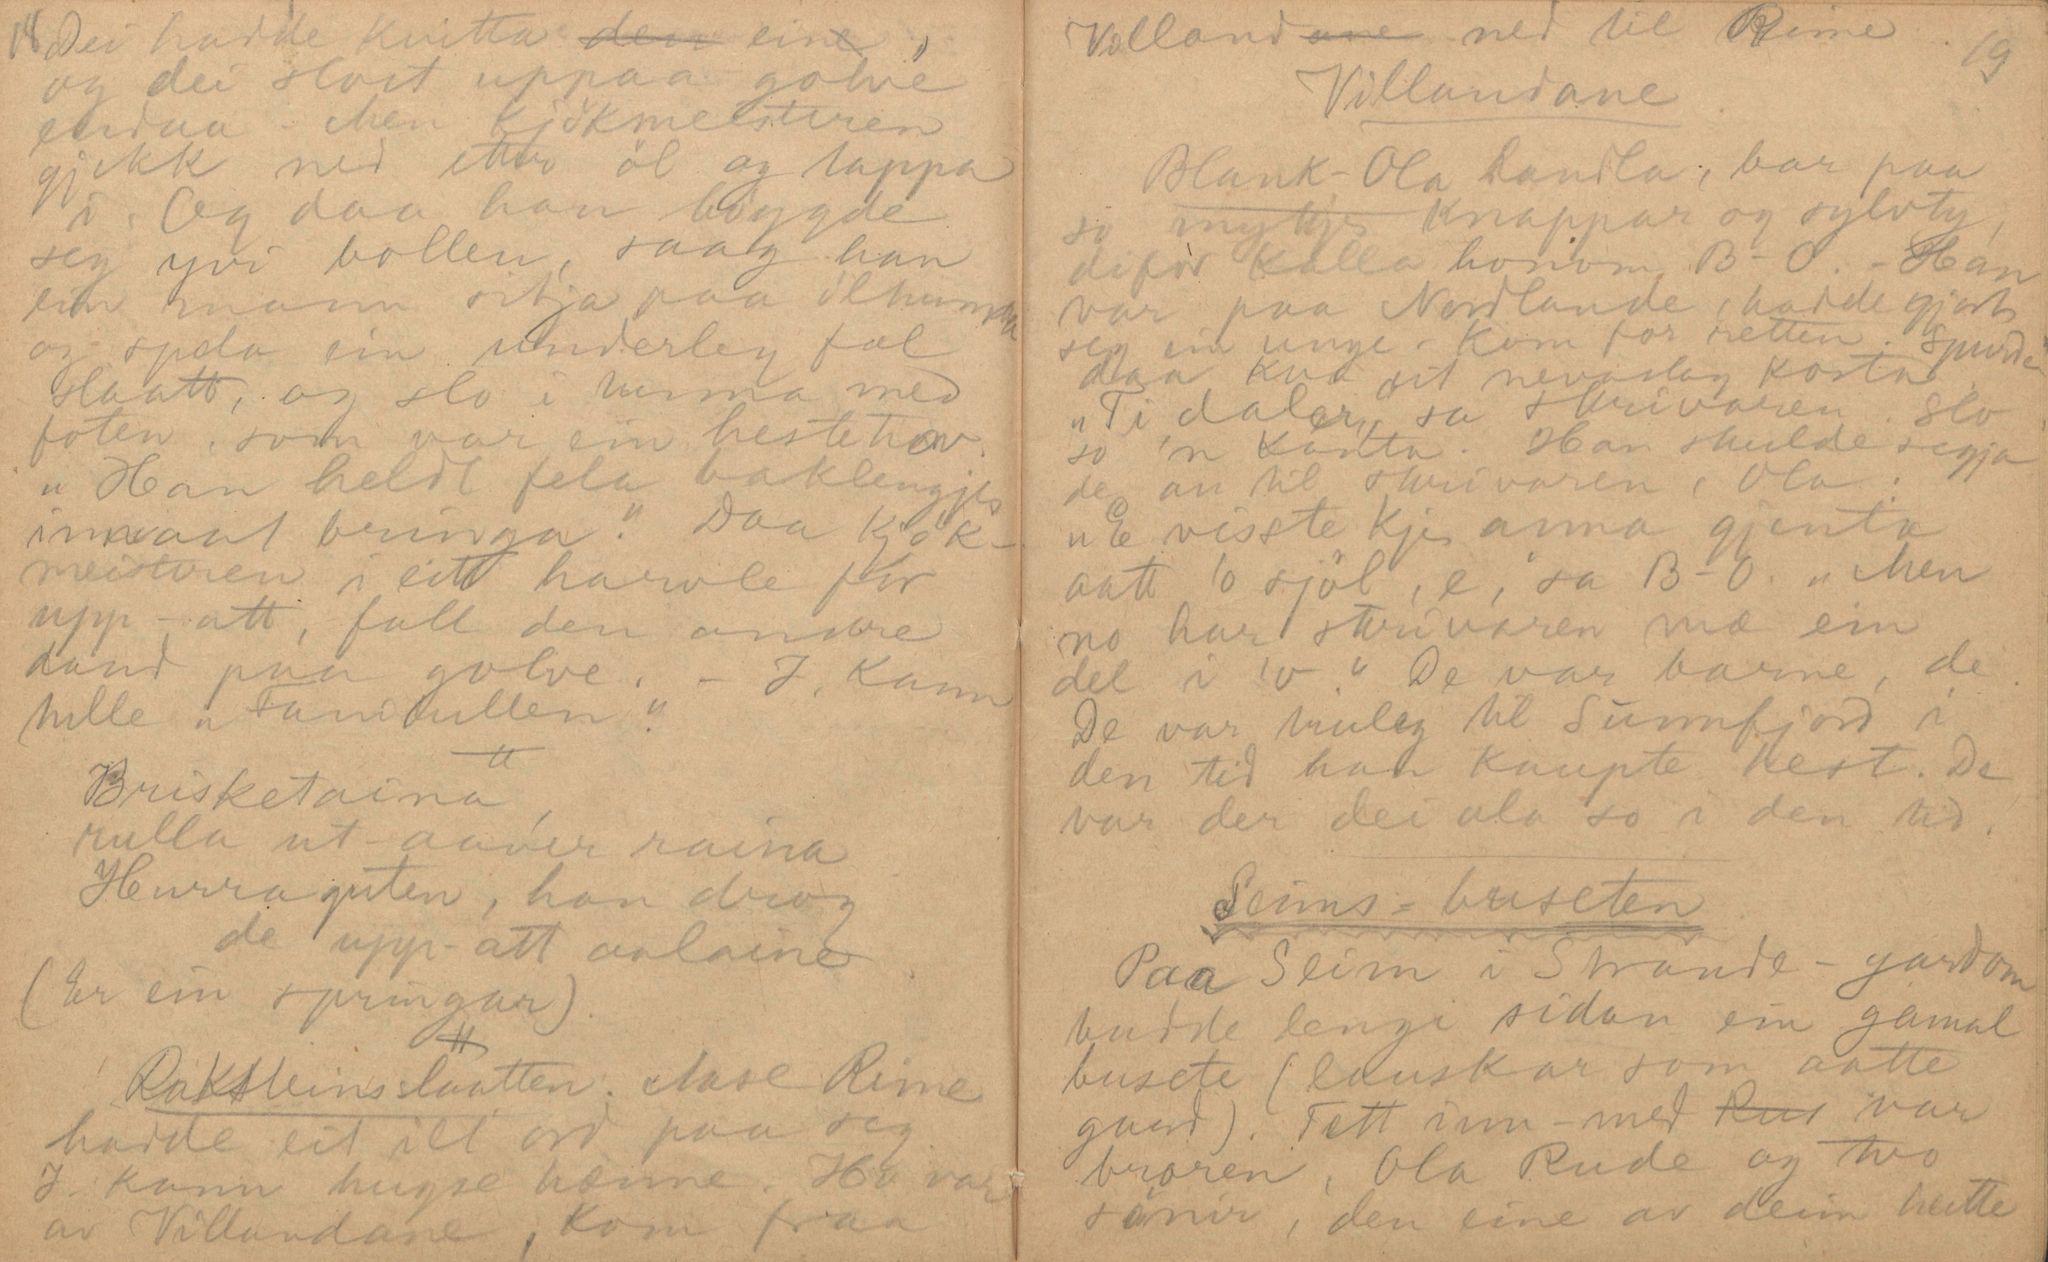 18 Dei hadde kvitta den eine,
og dei slost uppaa golve
endaa - Men kjökmeisteren
gjekk ned etter öl og tappa
i. Og daa han böygde
seg yvi bollen, saag han
ein mann sitja paa öltunna
og spela ein underleg fæl
slaatt, og slo i tunna med
foten, som var ein hestehov.
"Han heldt fela baklengjes
innaat bringa." Daa kjök-
meisteren i eitt harvle for
upp-att, fall den andre
daud paa golve. - J. kann
tulle "Fanitullen".
"
Brisketaina
rulla ut-aaver raina
Hurraguten, han drog
de upp-att aalaine
(Er ein springar).
"
Raksteinsslaatten. Aase Rime
hadde eit ilt ord paa seg
J. kann hugse hænne. Ho var
av Villandane, kom fraa
Villandane ned til Rime. 19
Villandane
Blank-Ola Dandla, bar paa
so mykje knappar og sylvty,
difor kalla honom B-O. - Han
var paa Nordlande, hadde gjort
seg ein unge. Kom for retten. Spurde
daa kva sit nevaslag kosta.
"Ti dalar", sa skrivaren. Slo
so 'n kanta. Han skulde segja
de an til skrivaren, Ola.
"E visste kje anna gjenta
aatt 'o sjöl, e," sa B-O. "Men
no har skrivaren mæ ein
del i 'o." De var barne, de.
De var truleg til Sunnfjord i
den tid han kaupte hest. De
var der dei ala so i den tid.
Seims-buseten
Paa Seim i Strande-gardom
budde lengi sidan ein gamal
busete (lauskar som aatte
gard). Tett inn-med Rud var
broren, Ola Rude og tvo
sönir, den eine av deim heitte